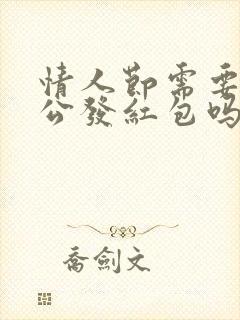 情人節需要
公發紅包嗎
喬劍文